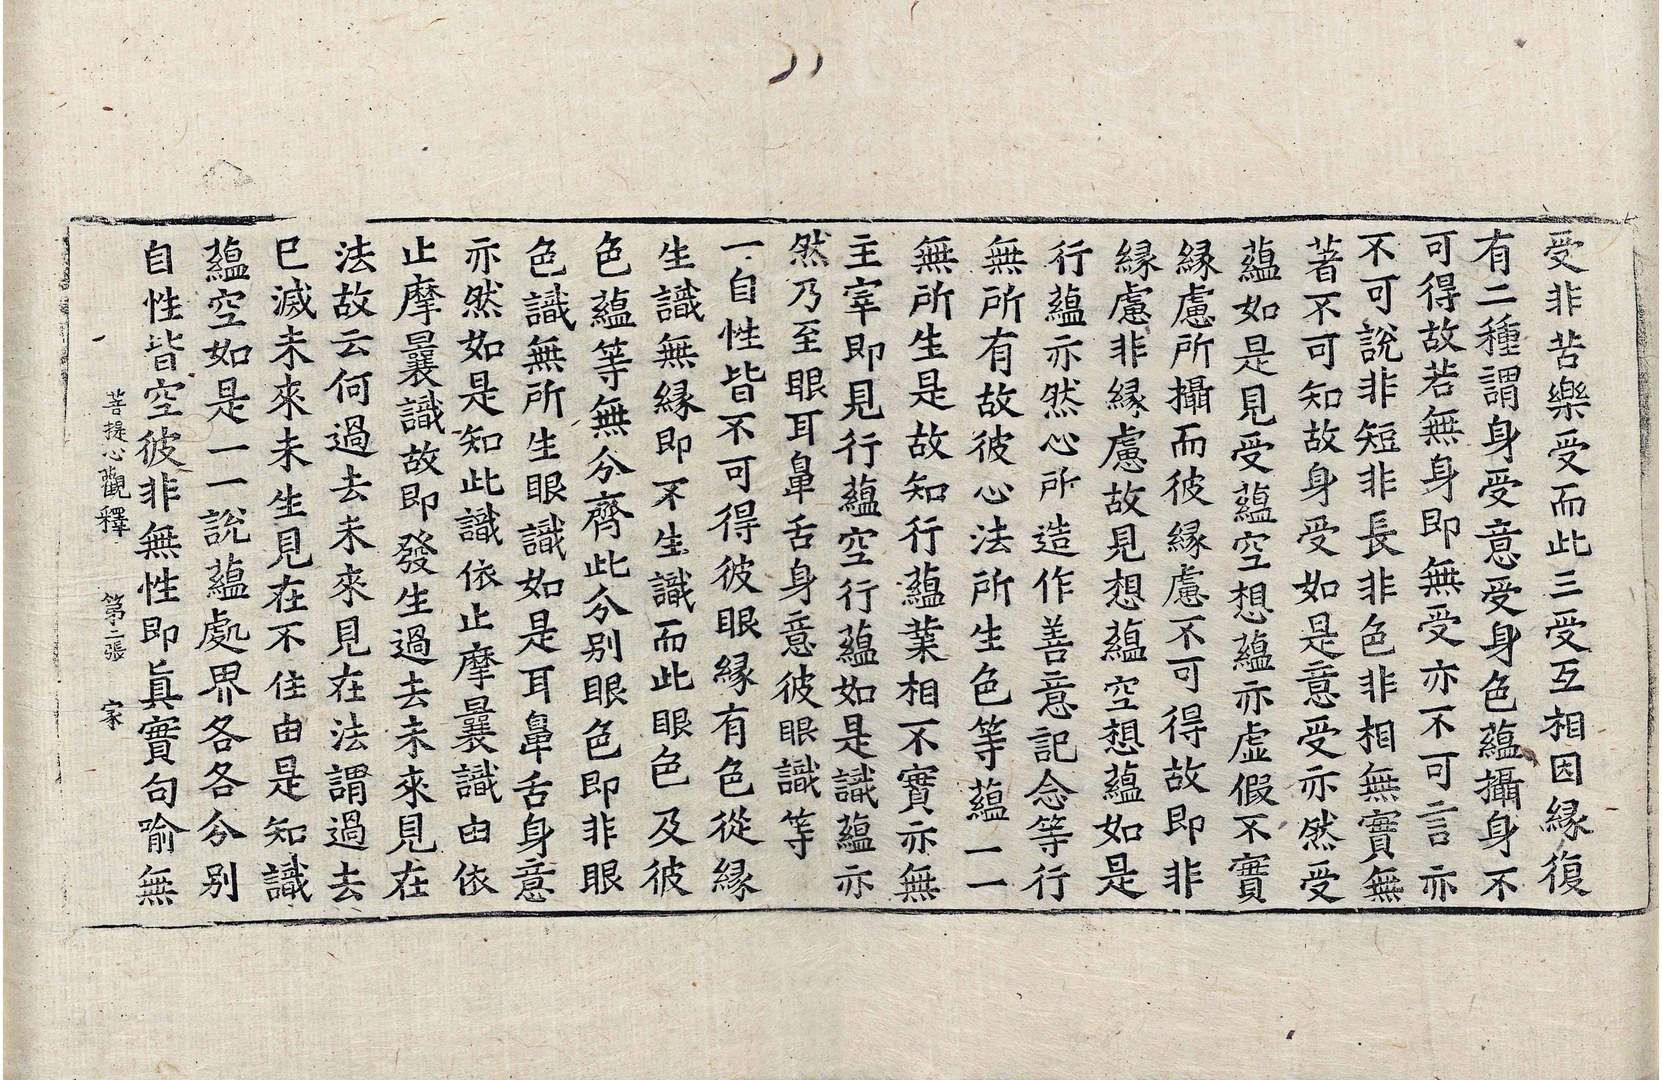 受非苦樂受而此三受互相因縁復
有二種謂身受意受身色蘊攝身不
可得故若無身即無受亦不可言亦
不可說非短非長非色非相無實無
著不可知故身受如是意受亦然受
蘊如是見受蘊空想蘊亦虛假不實
縁慮所攝而彼縁慮不可得故即非
縁慮非縁慮故見想蘊空想蘊如是
行蘊亦然心所造作善意記念等行
無所有故彼心法所生色等蘊一一
無所生是故知行蘊業相不實亦無
主宰即見行蘊空行蘊如是識蘊亦
然乃至眼耳鼻舌身意彼眼識等
一自性皆不可得彼眼縁有色從縁
生識無縁即不生識而此眼色及彼
色蘊等無分齊此分別眼色即非眼
色識無所生眼識如是耳鼻舌身意
亦然如是知此識依止摩曩識由依
止摩曩識故即發生過去未來見在
法故云何過去未來見在法謂過去
已滅未來未生見在不住由是知識
蘊空如是一一說蘊處界各各分別
自性皆空彼非無性即眞實句喻無
菩提心觀釋 第二張 家